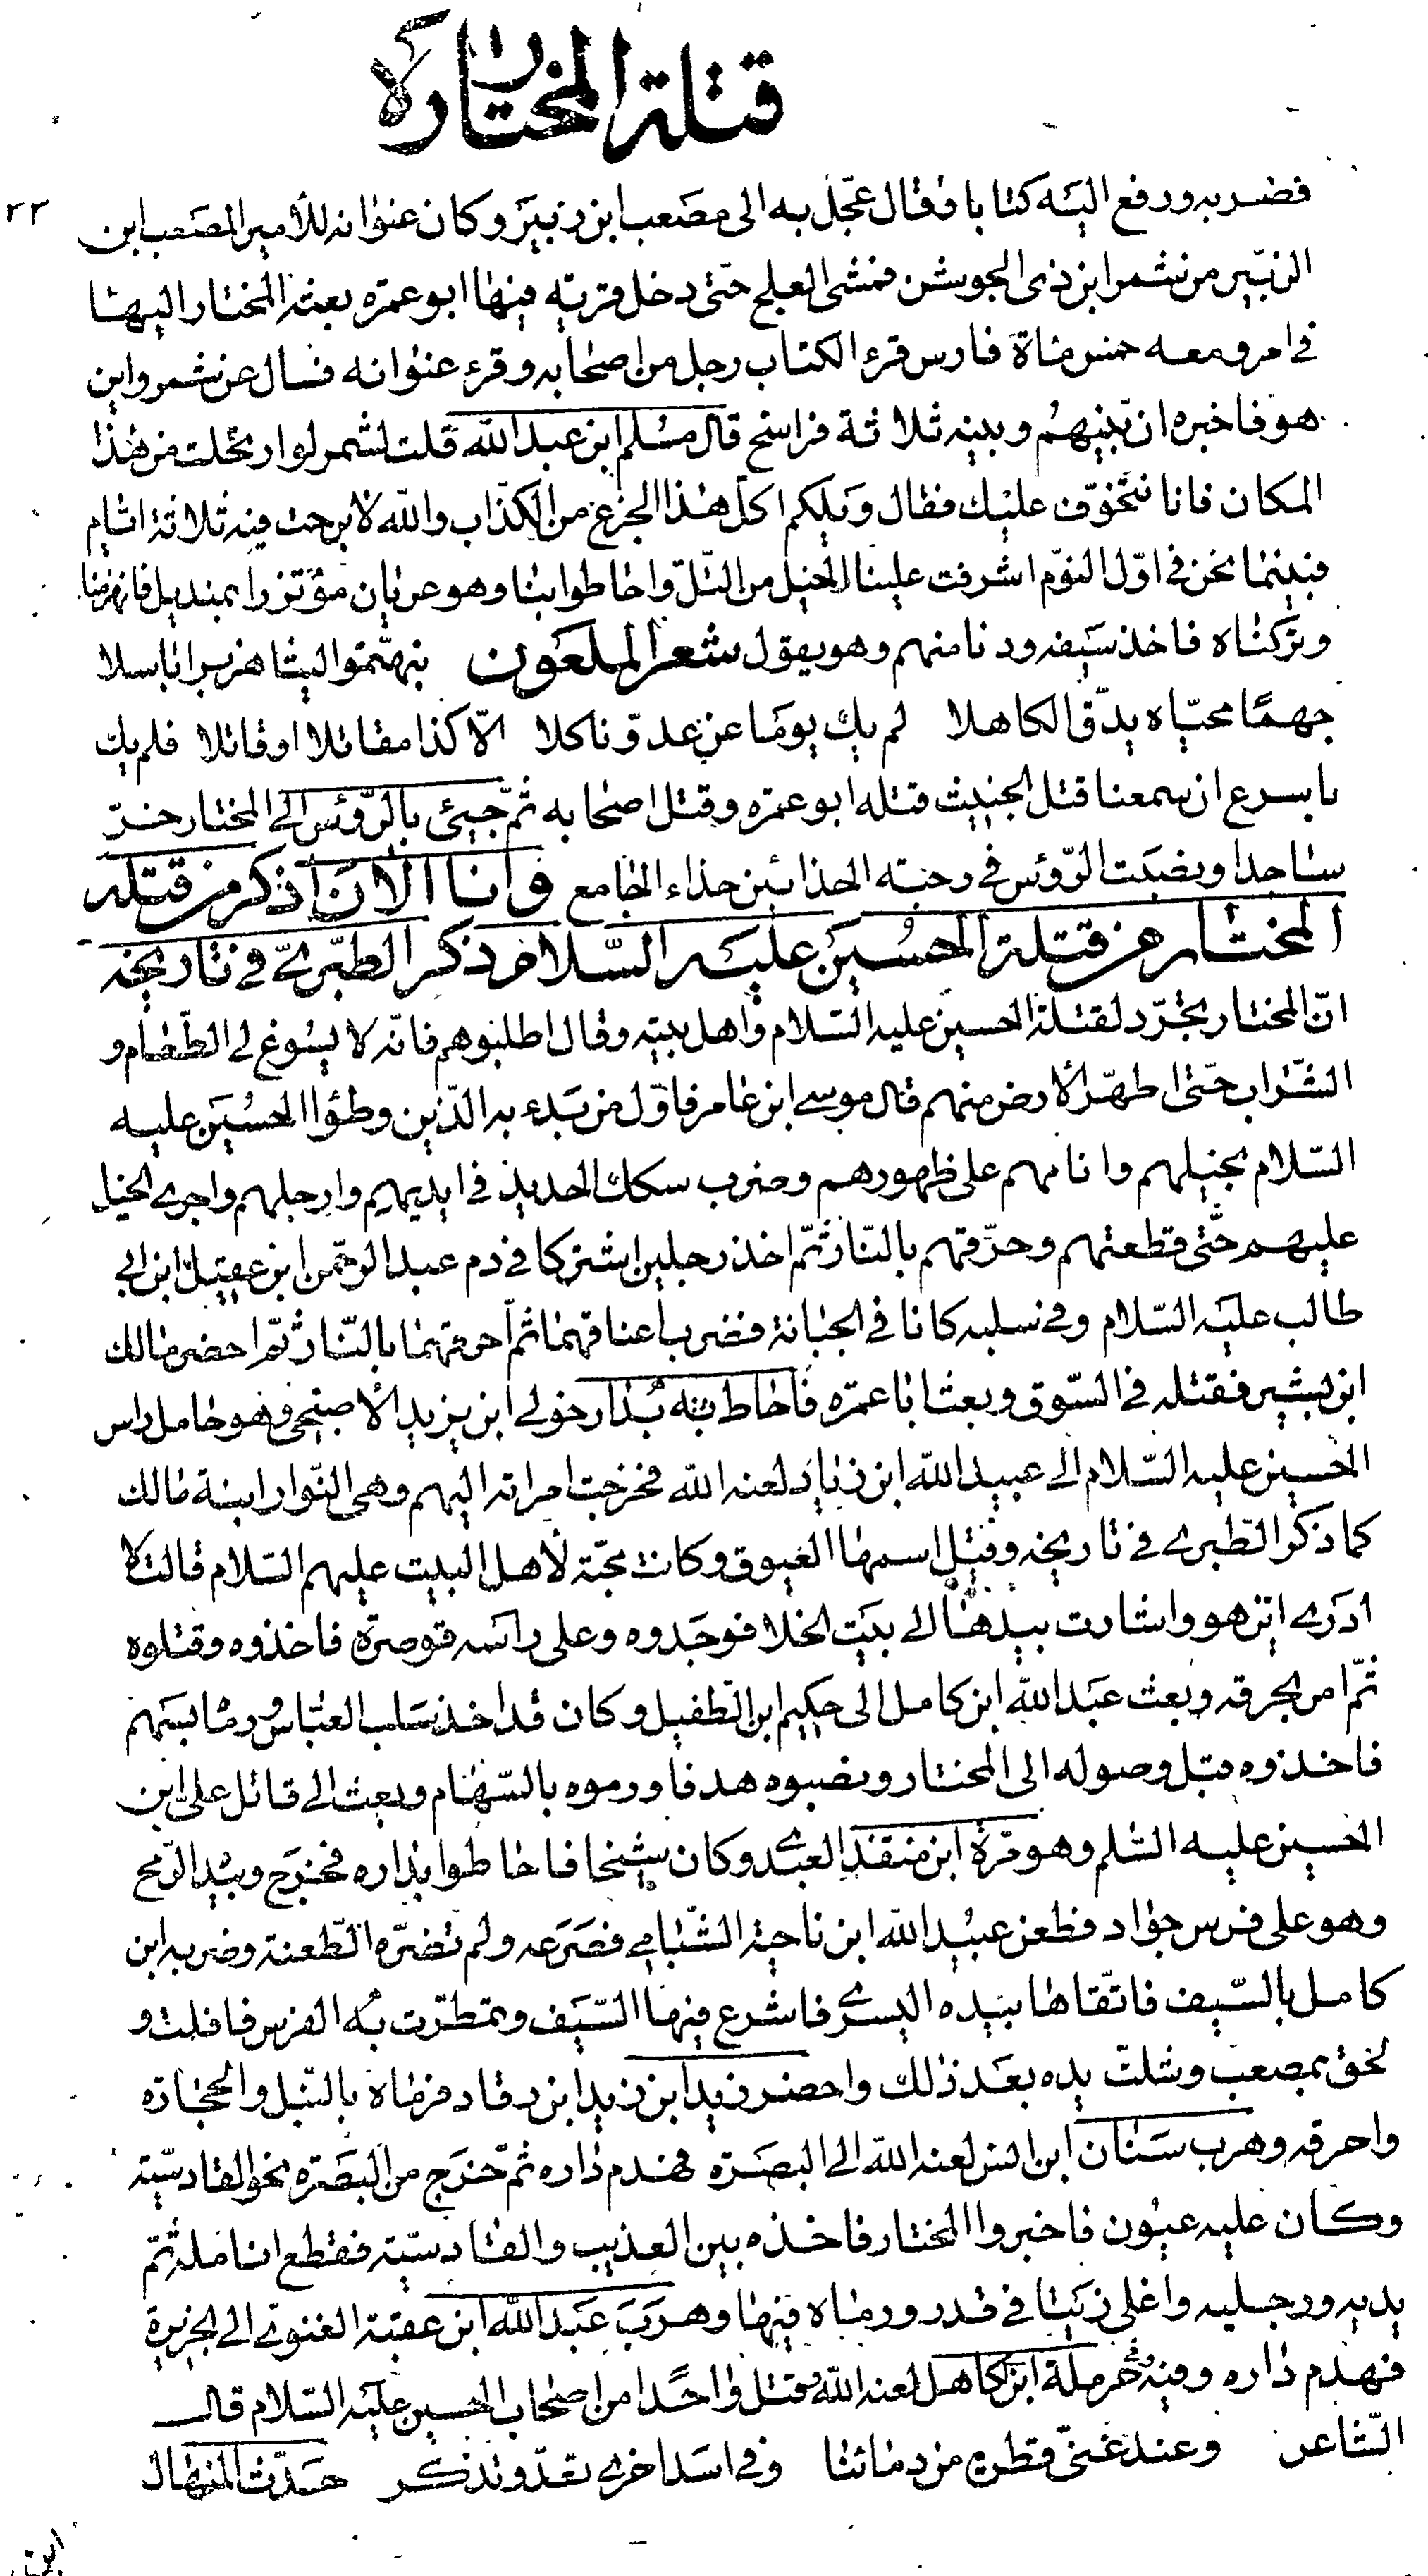 قتلة المختاره
٢٣
فضربه ورفع اليه كتابا وقال عجّل به الى مصعب ابن زبير وكان عنوانه للأمير المصعب ابن
الزبّير من شمر ابن ذى الجوشن فمشى العلج حتّى دخل قريته فيها ابو عمره بعثه المختار اليها
فى امر ومعه خمس مائة فارس قرء الكتاب رجل من اصحابه وقرء عنوانه فسال عن شمر واين
هو فاخبره ان بينهم وبينه ثلاثة فراسخ قال مسلم ابن عبد الله قلت لشمر لو ارتحلت من هذا
المكان فانا نتخوّف عليك فقال ويلكم اكلّ هذا الجزع من الكذّاب والله لا برحت فيه ثلاثة ايّام
فبينما نحن فى اوّل النوم اشرفت علينا الخيل من التلّ واحاطوا بنا وهو عريان مؤتزرا بمنديل فانهزمنا
وتركناه فاخذ سيفه ودنا منهم وهو يقول شعر الملعون نبهتموا ليثا هزبرا باسلا
جهمًا محيّاه يدّق الكاهلا لم يك يومًا عن عدوّ ناكلا الّا كذا مقاتلا او قاتلا فلم يك
باسرع ان سمعنا قتل الخبيث قتله ابو عمره وقتل اصحابه ثمّ جيئى بالرّوئس الى المختار خرّ
ساجدا ونصبت الرّوئس فى رحبته الحذائين حذاء الجامع وانا الان اذكر من قتله
المختار من قتلة الحسين عليه السّلام ذكر الطبّرىّ فى تاريخه
انّ المختار تجرّد لقتلة الحسين عليه السّلام واهل بيته وقال اطلبوهم فانّه لا يسُوغ لى الطّعام و
الشّراب حتّى اطهّر الأرض منهم قال موسى ابن عامر فاوّل من بدء به الذّين وطؤا الحسُين عليه
السّلام بخيلهم وانامهم على ظهورهم وضرب سكك الحديد فى ايديهم وارجلهم واجرى الخيل
عليهم حتّى قطعتهم وحرّقهم بالنّار ثمّ اخذ رجلين اشتركا فى دم عبد الرحمن ابن عقيل ابن ابى
طالب عليه السّلام وفى سلبه كانا فى الجبانة فضرب اعناقهما ثمّ احرقهما بالنّار ثمّ احضر مالك
ابن بشير فقتله فى السّوق وبعث ابا عمره فاحاط بدار خولى ابن يزيد الأصبحى وهو حامل راس
الحسين عليه السّلام الى عبيد الله ابن زياد لعنه الله فخرجت امراته اليهم وهى النّوار ابنة مالك
كما ذكر الطّبرى فى تاريخه وقيل اسمها العيوق وكانت محبّة لأهل البيت عليهم السّلام قالت لا
ادرى اين هو واشارت بيدها الى بيت الخلا فوجدوه وعلى راسه قوصرة فاخذوه وقتلوه
ثمّ امر بحرقه وبعث عبد الله ابن كامل الى حكيم ابن الطّفيل وكان قد اخذ سلب العبّاس ورماه بسهم
فاخذوه قبل وصوله الى المختار ونصبوه هدفا ورموه بالسّهام وبعث الى قاتل على ابن
الحسين عليه السّلم وهو مرّة ابن منقذ العبدى وكان شيخا فاحاطوا بداره فخرج وبيده الرّمح
وهو على فرس جواد فطعن عبيد الله ابن ناحية الشّبامى فصرعه ولم تضرّه الطّعنة وضربه ابن
كامل بالسّيف فاتّقاها بيده اليسرى فاشرع فيها السّيف وتمطّرت به الفرس فافلت و
لحق بمصعب وشلت يده بعد ذلك واحضر زيد ابن زيد ابن رقاد فرماه بالنّبل والحجاره
واحرقه وهرب سنان ابن انس لعنه الله الى البصره فهدم داره ثمّ خرج من البصره نحو القادسيّه
وكان عليه عيون فاخبروا المختار فاخذه بين العذيب والقادسيّه فقطع انامله ثمّ
يديه ورجليه واغلى زيتا فى قدر ورماه فيها وهرب عبد الله ابن عقبة الغنوى الى الجزيرة
فهدم داره وفيه وفى حرملة ابن كاهل لعنه الله وقتل واحدًا من اصحاب الحسين عليه السّلام قال
الشّاعر وعند غنىّ قطرة من دمائنا وفى اسد اخرى تعدّ وتذكر حدّث المنهال
ابن